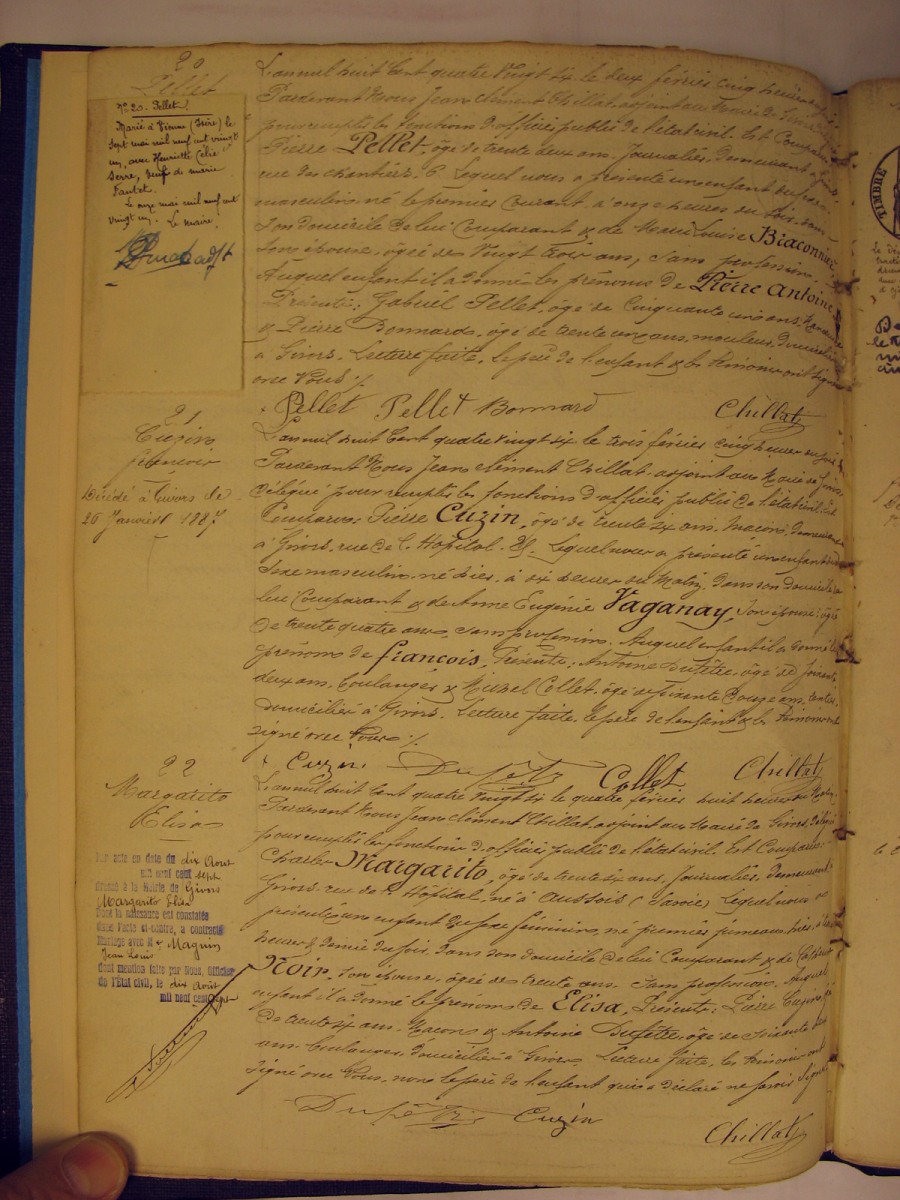 20
Pellet
N° 20. Pellet
Marié à Vienne (Isère) le
sept mai mil neuf cent vingt
un, avec Henriette Célie
Serre, veuf de Marie
Le onze mai mil neuf cent
vingt un. Le maire,
L'an mil huit cent quatre vingt six le deux février cinq heures du soir
Pardevant Nous Jean Clément Chillat, adjoint au Maire de Givors
pour remplir les fonctions d'officier public de l'état civil. Est Comparu
Pierre Pellet, âgé de trente deux ans, Journalier, demeurant à Givors
rue des chantiers, 6. Lequel nous a présenté un enfant du sexe
masculin, né le premier courant, à onze heures du soir, dans
son domicile de lui Comparant & de Marie Louise Biaconnier
son épouse, âgée de Vingt trois ans, sans profession.
Auquel enfant il a donné les prénoms de Pierre Antoine
Présents: Gabriel Pellet, âgé de Cinquante cinq ans,
& Pierre Bonnard, âgé de trente cinq ans, mouleur, domiciliés
à Givors. Lecture faite, le père de l'enfant & les témoins ont signé
avec Nous ./.
Pellet Pellet Bonnard Chillat
21
Cuzin
francois
Décédé à Givors le
26 Janvier 1887
L'an mil huit Cent quatre vingt six le trois février cinq heures du soir
Pardevant Nous Jean Clément Chillat, adjoint au Maire de Givors
délégué pour remplir les fonctions d'officier public de l'état civil. Est
Comparu: Pierre Cuzin, âgé de trente six ans, Maçon, demeurant
à Givors, rue de l'Hôpital. Lequel nous a présenté un enfant du
sexe masculin, né hier, à six heures du Matin, dans son domicile de
lui Comparant & de Anne Eugénie Vaganay, son épouse, âgée
de trente quatre ans, sans profession. Auquel enfant il a donné le
prénom de francois. Présents: Antoine Dufêtre, âgé de soixante
deux ans, boulanger & Michel Collet, âgé de soixante douze ans, rentier
domiciliés à Givors. Lecture faite, le père de l'enfant & les témoins ont
signé avec Nous ./.
Cuzin Dufêtre Collet Chillat
22
Margarito
Elisa
Par acte en date du dix Août
mil neuf cent sept
dressé à la Mairie de Givors
Margarito Elisa
dont la naissance est constatée
dans l'acte ci-contre, a contracté
mariage avec Mr Magnin
Jean Louis
dont mention faite par Nous, Officier
de l'État civil, le dix Août
mil neuf cent sept
L'an mil huit Cent quatre Vingt six le quatre février huit heures du Matin
Pardevant Nous Jean Clément Chillat, adjoint au Maire de Givors, délégué
pour remplir les fonctions d'officier public de l'état civil. Est Comparu:
Charles Margarito, âgé de trente six ans, Journalier, demeurant
Givors rue de l'Hôpital, né à Aussois (Savoie) Lequel nous a
présenté un enfant du sexe féminin, né premier jumeau, hier, à
heures & demie du soir, dans son domicile de lui Comparant & de
Noir, son épouse, âgée de trente ans, sans profession. Auquel
enfant il a donné le prénom de Elisa. Présents: Pierre Cuzin, âgé
de trente six ans, Maçon & Antoine Dufêtre, âgé de soixante deux
ans, boulanger, domiciliés à Givors. Lecture faite, les témoins ont
signé avec Nous, non le père de l'enfant qui a déclaré ne savoir signer
Dufêtre Cuzin
Chillat
TIMBRE